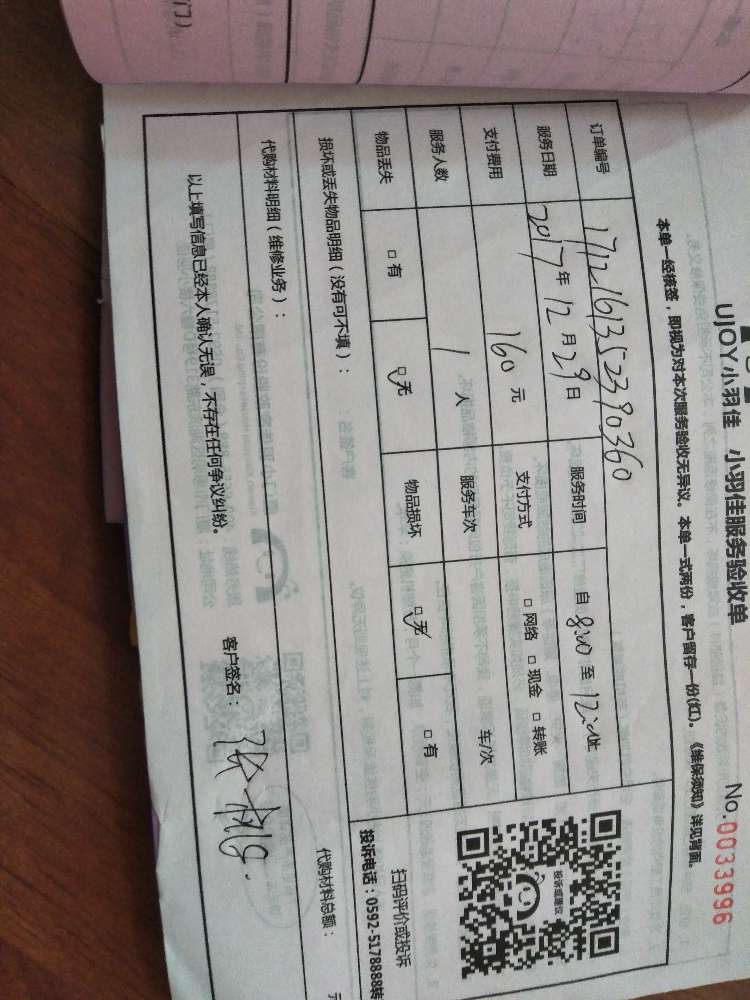 UJOY小羽佳 小羽佳服务验收单
No.0033996
本单一经核签，即视为对本次服务验收无异议。本单一式两份，客户留存一份(红)。《维保须知》详见背面。
订单编号 1712161352390360
服务日期 2017年12月29日 服务时间 自 8:00 至 12:00止
支付费用 160元 支付方式 □网络 □现金 □转账
服务人数 1人 服务车次 车/次
物品丢失 □有 □无 物品损坏 □无 □有
损坏或丢失物品明细（没有可不填）：
扫码评价或投诉
投诉电话：0592-5178888转
代购材料明细（维修业务）： 代购材料总额：
以上填写信息已经本人确认无误，不存在任何争议纠纷。 客户签名：